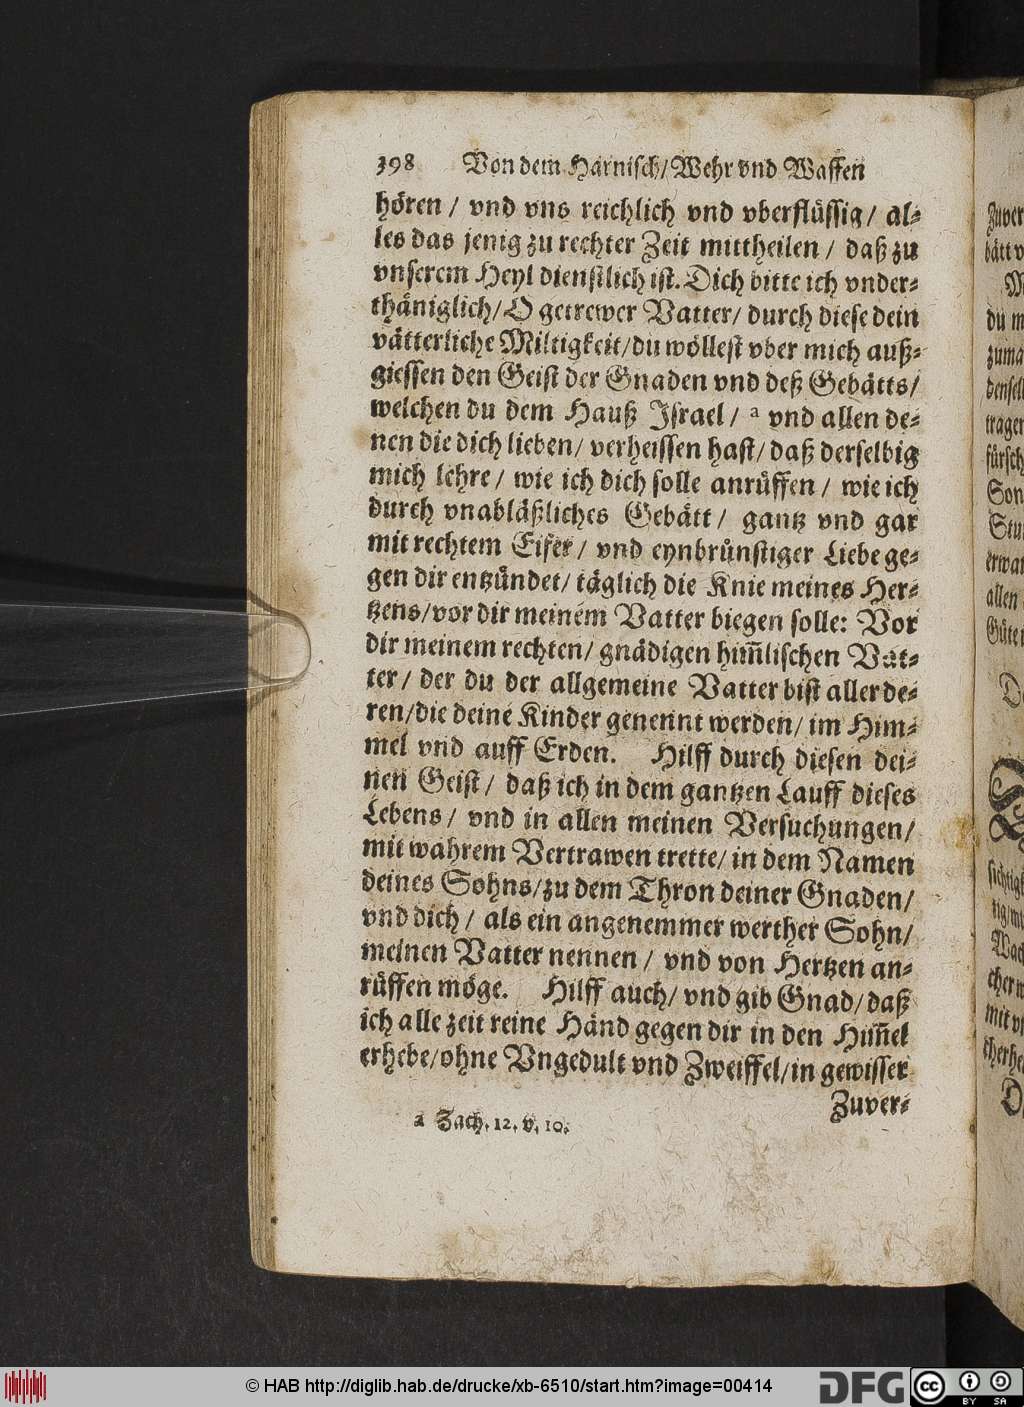 398 Von dem Harnisch/ Wehr vnd Waffen
hören / vnd vns reichlich vnd vberflüssig/ al-
les das jenig zu rechter Zeit mittheilen / daß zu
vnserem Heyl dienstlich ist. Dich bitte ich vnder-
thäniglich/ O getrewer Vatter/ durch diese dein
vätterliche Miltigkeit/ du wöllest vber mich auß-
giessen den Geist der Gnaden vnd deß Gebätts/
welchen du dem Hauß Israel / a vnd allen de-
nen die dich lieben/ verheissen hast/ daß derselbig
mich lehre / wie ich dich solle anrüffen / wie ich
durch vnabläßliches Gebätt / gantz vnd gar
mit rechtem Eifer / vnd eynbrünstiger Liebe ge-
gen dir entzündet/ täglich die Knie meines Her-
tzens/ vor dir meinem Vatter biegen solle: Vor
dir meinem rechten/ gnädigen him̃lischen Vat-
ter / der du der allgemeine Vatter bist aller de-
ren/ die deine Kinder genennt werden/ im Him-
mel vnd auff Erden. Hilff durch diesen dei-
nen Geist / daß ich in dem gantzen Lauff dieses
Lebens / vnd in allen meinen Versuchungen/
mit wahrem Vertrawen trette/ in dem Namen
deines Sohns/ zu dem Thron deiner Gnaden/
vnd dich / als ein angenemmer werther Sohn/
meinen Vatter nennen / vnd von Hertzen an-
rüffen möge. Hilff auch/ vnd gib Gnad/ daß
ich alle zeit reine Händ gegen dir in den Him̃el
erhebe/ ohne Vngedult vnd Zweiffel/ in gewisser
Zuver-
a Zach. 12. v. 10.
Zuver
bätt v
du m
zuma
densel
tragen
fürsch
Son
Stu
erwar
allen
Güte
sichtig
Wach
cher
mit v
© HAB http://diglib.hab.de/drucke/xb-6510/start.htm?image=00414
DFG
cc BY SA